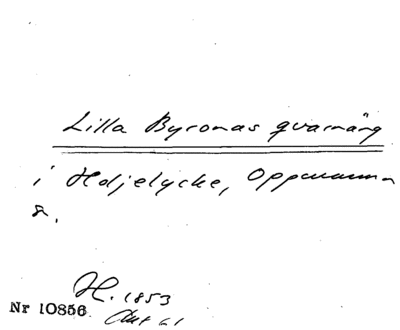 Lilla Byronas qvarnäng
i Hdjelycke, Oppmanna
s.
H. 1853
Nr 10856